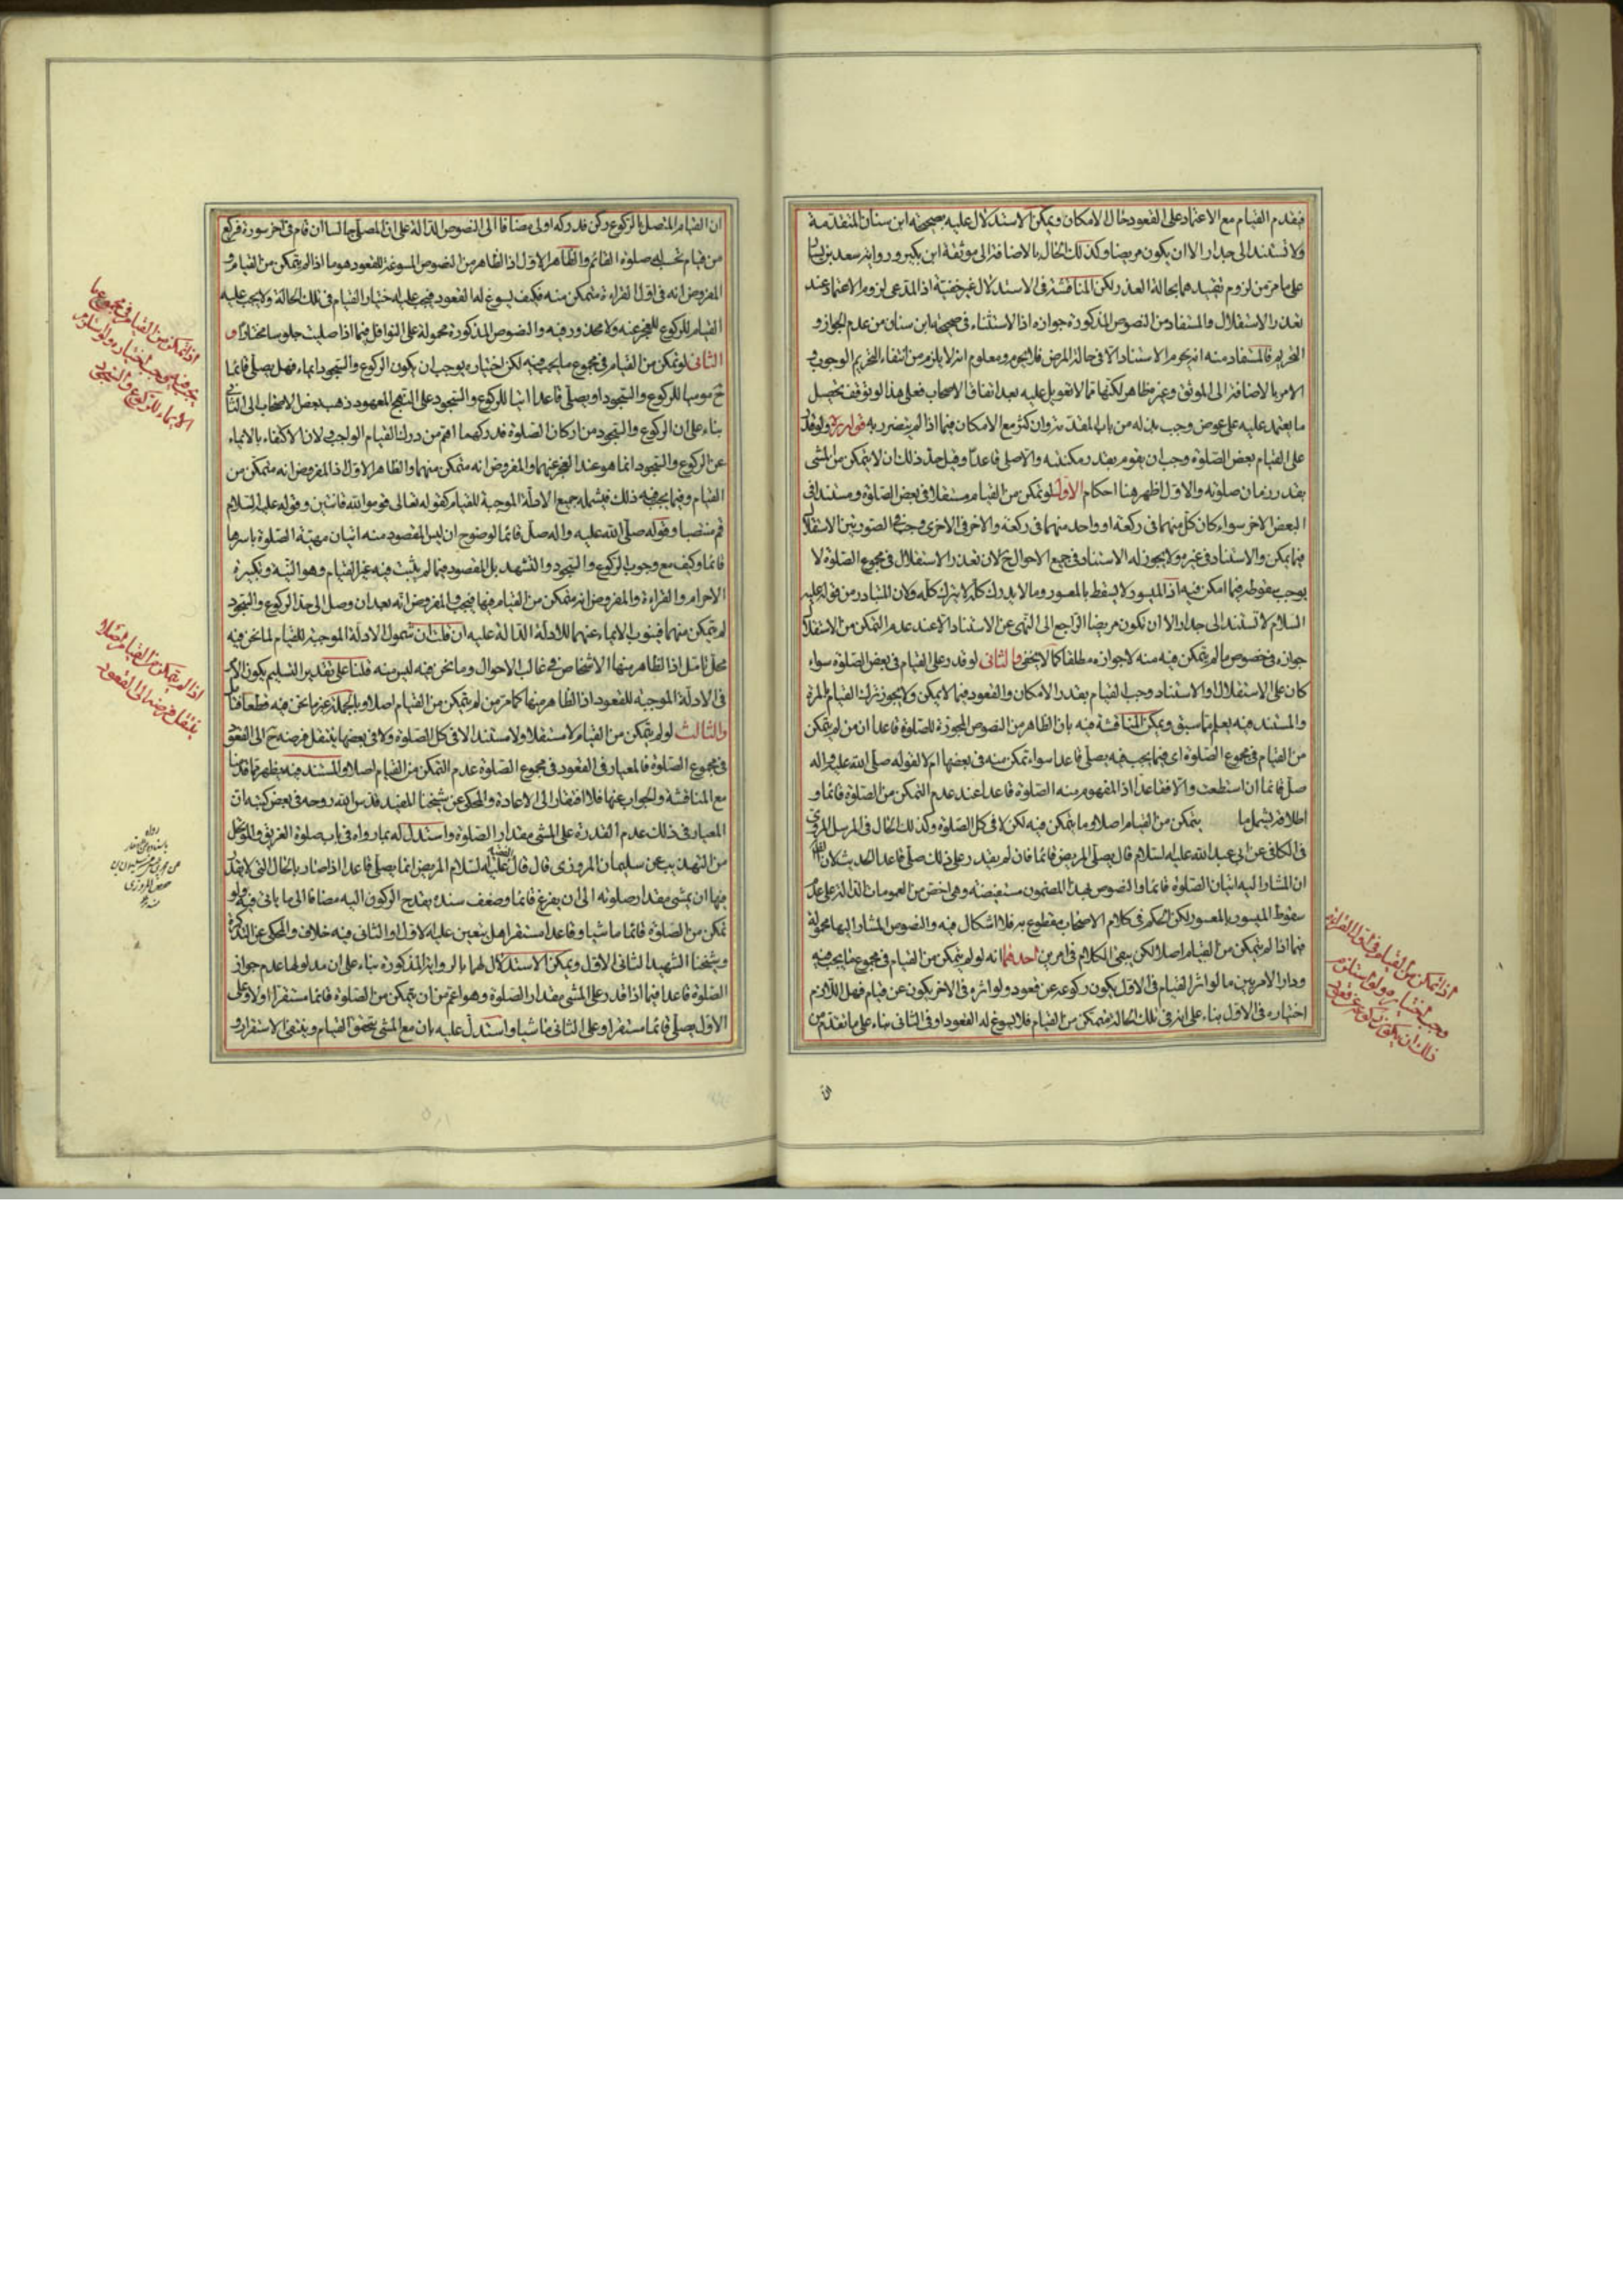 فيقدم القيام مع الاعتماد على القعود حال الامكان ويمكن الاستدلال عليه بصحيحة ابن سنان المتقدمة
ولا تستند الى جدار الا ان يكون مريضا وكذلك الحال بالاضافة الى موثقة ابن بكير ورواية سعيد بن يسار
على ما مر من لزوم تقييدهما بحالة العذر لكن المناقشة فى الاستدلال غير خفية اذ المدعى لزوم الاعتماد عند
تعذر الاستقلال والمستفاد من النصوص المذكورة جوازه اذ الاستثناء فى صحيحة ابن سنان من عدم الجواز و
التحريم فالمستفاد منه انه يحرم الاستناد الا فى حالة المرض فلا يحرم ومعلوم انه لا يلزم من انتفاء التحريم الوجوب و
الامر بالاضافة الى الموثق وغيره ظاهر لكنها مما لا تعويل عليه بعد اتفاق الاصحاب فعلى هذا لو توقف تحصيل
ما يعتمد عليه على عوض وجب بذله من باب المقدمة وان كثر مع الامكان فيما اذا لم يتضرر به قوله ره ولو قدر
على القيام بعض الصلوة وجب ان يقوم بقدر مكنته والا صلى قاعدا وقيل حد ذلك ان لا يتمكن من المشى
بقدر زمان صلوته والاول اظهر هنا احكام الاول لو تمكن من القيام مستقلا فى بعض الصلوة ومستندا فى
البعض الاخر سواء كان كل منهما فى ركعة او واحد منهما فى ركعة والاخر فى الاخرى وجب فى الصورتين الاستقلال
فيما يمكن والاستناد فى غيره ولا يجوز له الاستناد فى جميع الاحوال ح لان تعذر الاستقلال فى مجموع الصلوة لا
يوجب سقوطه فيما امكن فيه اذ الميسور لا يسقط بالمعسور وما لا يدرك كله لا يترك كله ولان المتبادر من قوله عليه
السلام لا تستند الى جدار الا ان تكون مريضا الراجع الى النهى عن الاستناد الا عند عدم التمكن من الاستقلال
جوازه فى خصوص ما لم يتمكن فيه منه لا جوازه مطلقا كما لا يخفى والثانى لو قدر على القيام فى بعض الصلوة سواء
كان على الاستقلال او الاستناد وجب القيام بقدر الامكان والقعود فيما لا يمكن ولا يجوز ترك القيام المرة
والمستند فيه يعلم مما سبق ويمكن المناقشة فيه بان الظاهر من النصوص المجوزة للصلوة قاعدا ان من لم يتمكن
من القيام فى مجموع الصلوة اى فيما يجب فيه يصلى قاعدا سواء تمكن منه فى بعضها ام لا لقوله صلى الله عليه واله
صل قائما ان استطعت والا فقاعدا اذ المفهوم منه الصلوة قاعدا عند عدم التمكن من الصلوة قائما و
اطلاقه يشمل ما يتمكن من القيام اصلا وما يتمكن فيه لكن لا فى كل الصلوة وكذلك الحال فى المرسل المروى
فى الكافى عن ابى عبد الله عليه السلام قال يصلى المريض قائما فان لم يقدر على ذلك صلى قاعدا الحديث لان
ان المشار اليه اتيان الصلوة قائما والنصوص بهذا المضمون مستفيضة وهى اخص من العمومات الدالة على عدم
سقوط الميسور بالمعسور لكن الحكم فى كلام الاصحاب مقطوع به فلا اشكال فيه والنصوص المشار اليها محمولة
فيما اذا لم يتمكن من القيام اصلا لكن يبقى الكلام فى امرين احدهما انه لو لم يتمكن من القيام فى مجموع ما يجب فيه
ودار الامر بين ما لو اثر القيام فى الاول يكون ركوعه عن قعود ولو اثره فى الاخر يكون عن قيام فهل اللازم
اختياره فى الاول بناء على انه فى تلك الحالة متمكن من القيام فلا يسوغ له القعود او فى الثانى بناء على ما تقدم من
اذا تمكن من القيام فى اول القراءة
وجب اختياره ولو استلزم
ذلك ان يكون ركوعه عن قعود
ان القيام المتصل بالركوع ركن فدركه اولى مضافا الى النصوص الدالة على ان المصلى جالسا ان قام فى اخر سورة فركع
من قيام تحسب له صلوة القائم والظاهر الاول اذ الظاهر من النصوص المسوغة للقعود هو ما اذا لم يتمكن من القيام و
المفروض انه فى اول القراءة متمكن منه فكيف يسوغ له القعود فيجب عليه اختيار القيام فى تلك الحالة ولا يجب عليه
القيام للركوع للعجز عنه ولا محذور فيه والنصوص المذكورة محمولة على النوافل فيما اذا صليت جلوسا مختارا و
الثانى لو تمكن من القيام فى مجموع ما يجب فيه لكن اختياره يوجب ان يكون الركوع والسجود ايماء فهل يصلى قائما
ح موميا للركوع والسجود او يصلى قاعدا اتيا للركوع والسجود على النهج المعهود ذهب بعض الاصحاب الى الثانى
بناء على ان الركوع والسجود من اركان الصلوة فدركهما اهم من درك القيام الواجب ولان الاكتفاء بالايماء
عن الركوع والسجود انما هو عند العجز عنهما والمفروض انه متمكن منهما والظاهر الاول اذ المفروض انه متمكن من
القيام وفيما يجب فيه ذلك فيشمله جميع الادلة الموجبة للقيام كقوله تعالى قوموا لله قانتين وقوله عليه السلام
قم منتصبا وقوله صلى الله عليه واله صل قائما لوضوح ان ليس المقصود منه اتيان مهية الصلوة باسرها
قائما وكيف مع وجوب الركوع والسجود والتشهد بل المقصود فيما لم يثبت فيه غير القيام وهو النية وتكبيرة
الاحرام والقراءة والمفروض انه متمكن من القيام فيها فيجب والمفروض انه بعد ان وصل الى حد الركوع والسجود
لم يتمكن منهما فينوب الايماء عنهما للادلة الدالة عليه ان قلت ان شمول الادلة الموجبة للقيام لما نحن فيه
محل تامل اذ الظاهر منها الاشخاص فى غالب الاحوال وما نحن فيه ليس منه قلنا على تقدير التسليم يكون الامر
فى الادلة الموجبة للقعود اذ الظاهر منها كما مر من لم يتمكن من القيام اصلا وبالجملة غير ما نحن فيه قطعا
والثالث لو لم يتمكن من القيام لا مستقلا ولا مستندا لا فى كل الصلوة ولا فى بعضها ينتقل فرضه ح الى القعود
فى مجموع الصلوة فالمعيار فى القعود فى مجموع الصلوة عدم التمكن من القيام اصلا والمستند فيه يظهر مما قدمنا
مع المناقشة والجواب عنها فلا افتقار الى الاعادة والمحكى عن شيخنا المفيد قدس الله روحه فى بعض كتبه ان
المعيار فى ذلك عدم القدرة على المشى مقدار الصلوة واستدل له بما رواه فى باب صلوة الغريق والمتوحل
من التهذيب عن سليمان المروزى قال قال الفقيه عليه السلام المريض انما يصلى قاعدا اذا صار بالحال التى لا يقدر
فيها ان يمشى مقدار صلوته الى ان يفرغ قائما وضعف سنده يقدح الركون اليه مضافا الى ما ياتى فيه ولو
تمكن من الصلوة قائما ماشيا وقاعدا مستقرا هل يتعين عليه الاول او الثانى فيه خلاف والمحكى عن التذكرة
وشيخنا الشهيد الثانى الاول ويمكن الاستدلال لهما بالرواية المذكورة بناء على ان مدلولها عدم جواز
الصلوة قاعدا فيما اذا قدر على المشى مقدار الصلوة وهو اعم من ان يتمكن من الصلوة قائما مستقرا اولا وعلى
الاول يصلى قائما مستقرا وعلى الثانى ماشيا واستدل عليه بان مع المشى يتحقق القيام وينتفى الاستقرار و
اذا تمكن من القيام فى مجموع ما
يجب فيه وجب اختياره ولو استلزم
الايماء للركوع والسجود
اذا لم يتمكن من القيام اصلا
ينتقل فرضه الى القعود
رواه